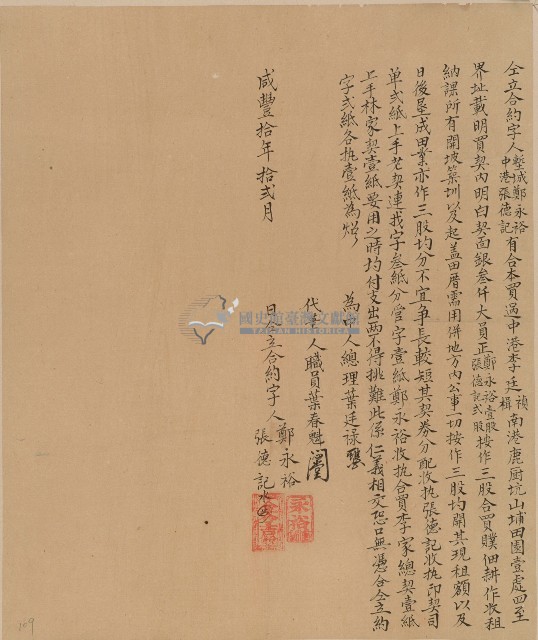 仝立合約字人塹城鄭永裕中港張德記有合本買過中港李廷禎楫南港鹿厨坑山埔田園壹處四至
界址載明買契內明白契面銀叁仟大員正鄭永裕壹股張德記弍股按作三股合買贌佃耕作收租
納課所有開坡築圳以及起盖田厝需用併地方內公事一切按作三股均開其現租額以及
日後墾成田業亦作三股均分不宜爭長較短其契券分配收执張德記收执印契司
单弍紙上手老契連找字叁紙分管字壹紙鄭永裕收执合買李家總契壹紙
上手林家契壹紙要用之時均付支出両不得挑難此係仁義相交恐口無憑合仝立約
字弍紙各执壹紙為炤
為中人總理葉廷禄
代筆人職員葉春魁
日仝立合約字人鄭永裕
張德記
咸豐拾年拾弍月
國史館臺灣文獻館
109